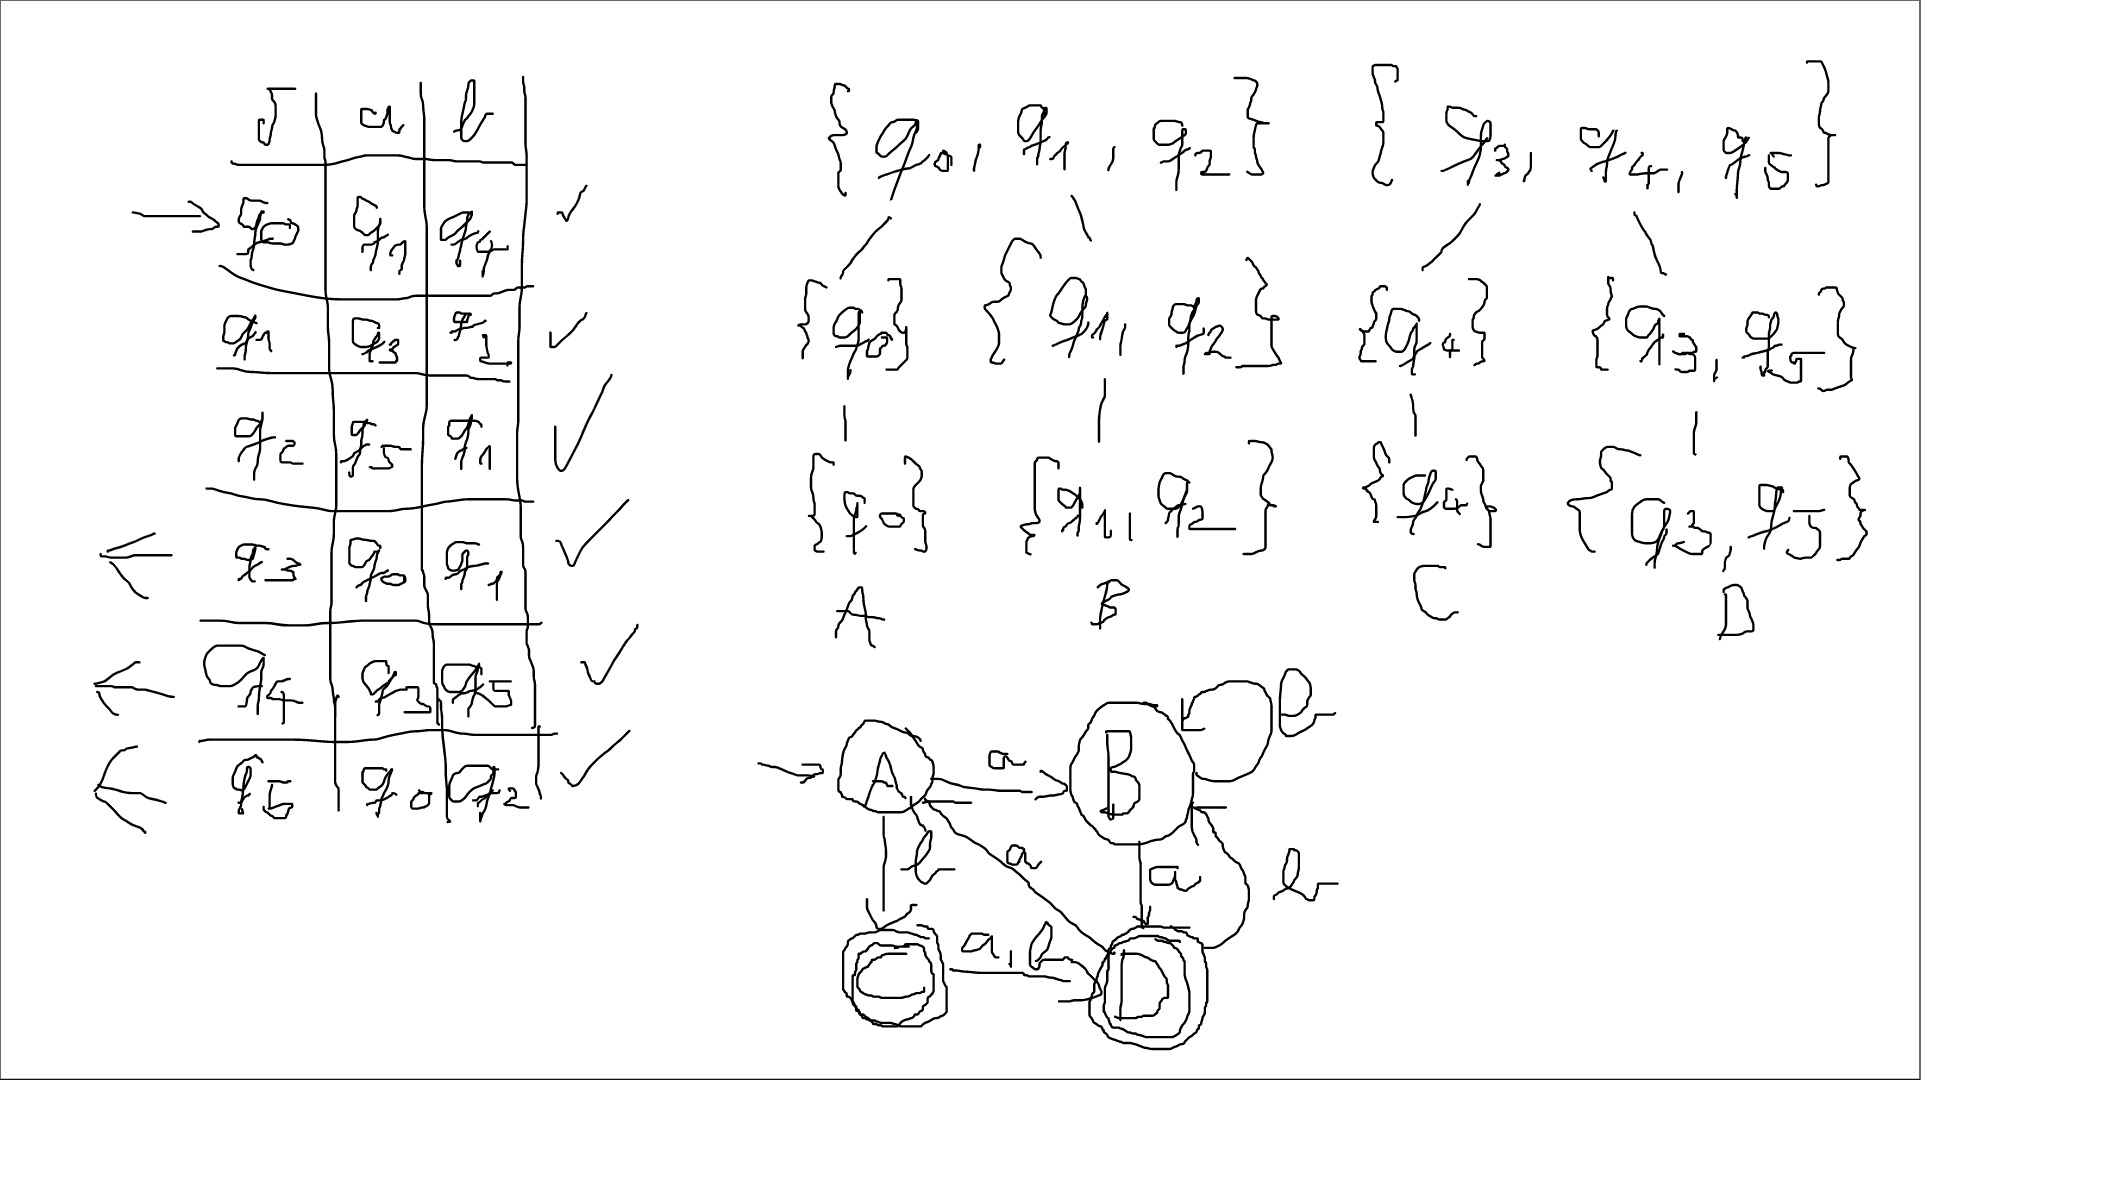 δ a b
→ q0 q1 q4 ✓
q1 q3 q2 ✓
q2 q5 q1 ✓
← q3 q0 q1 ✓
← q4 q3 q5 ✓
← q5 q0 q2 ✓
{q0, q1, q2} {q3, q4, q5}
{q0} {q1, q2} {q4} {q3, q5}
{q0} {q1, q2} {q4} {q3, q5}
A B C D
b
→ A a B
b a a b
C a,b D